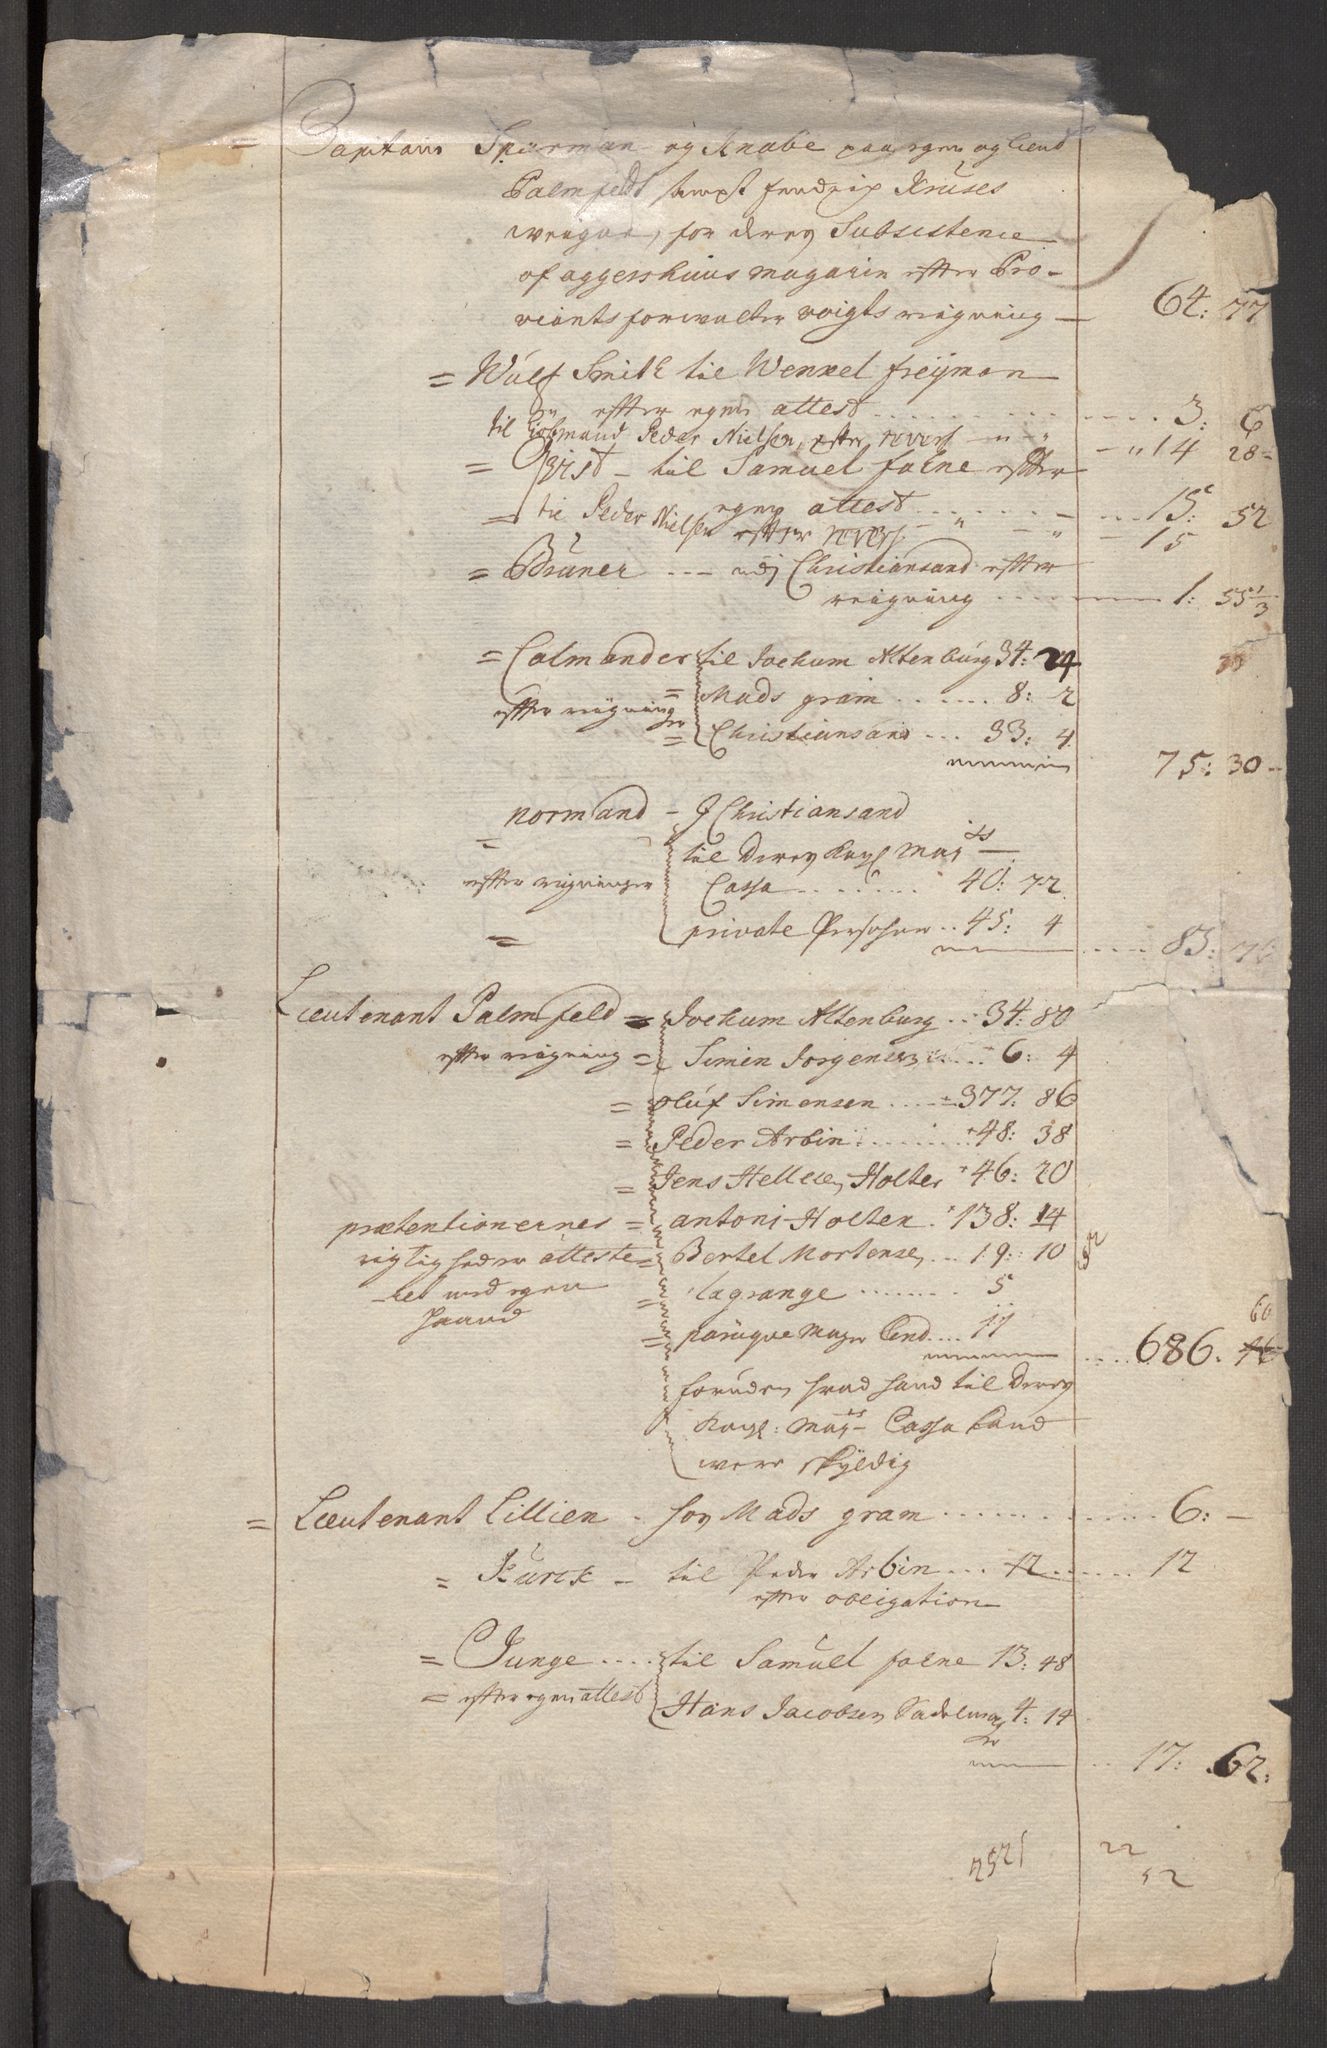 = Capitain Spärman og Knabe paa egen og lieut
Palmfeldt sampt fendrix Krúses
weigne, for deres Subsistence
af aggershuus magazin effter Pro-
viantsforwalter voigts reigning — 64: 77
= Wúlf Smith til Wenxel freÿmon
effter egen attest ........ 3: 6
til Peder Nielsen, effter revers — " 14 28 =
= Qvist — til Samuel faene effter
egen attest ........ 15: 52
= til Peder Nielsen effter revers — " — " — 15
= Brúner --- udj Christiansand effter
reigning ........ 1: 55 1/3
= Calmander til Jochum Altenbúrg 34: 24
= Mads gram ....... 8: 2
effter reigninger
= Christiansand ... 33: 4
75: 30 —
normand — J Christiansand
=
til Deres Kongl Maÿ ts
effter reigninger Cassa ........ 40: 72
= private Persohner .. 45: 4
.... 83: 76
Lieutenant Palmfeld = Jochum Altenburg .. 34: 80
effter reigning = Simen Jorgensen ..... 6: 4
= olúf Simensen ..... 377: 86
= Peder Arbin ........ 48: 38
= Jens Hellesen Holter 46: 20
prætentionernes = antoni Holter . 138: 14
rigtighed er atteste = Bertel Mortensen ... 19: 10
-ret med egen = lagrange ........ 5
haand = parúqve mager lend .... 11
60
.... 686. 46
forúden hvad hand til Deres
Kongl: Maÿ ts Cassa kand
were skÿldig
= Lieutenant Lillien . hos Mads gram ........ 6: —
= Kúrck — til Peder Arbin ... 12 ...... 12
effter obligation
= Junge .... til Samúel faene 13: 48
= effter egen attest Hans Jacobsen Sadelmag 4: 14
er
.. 17: 62:
2521 22
52